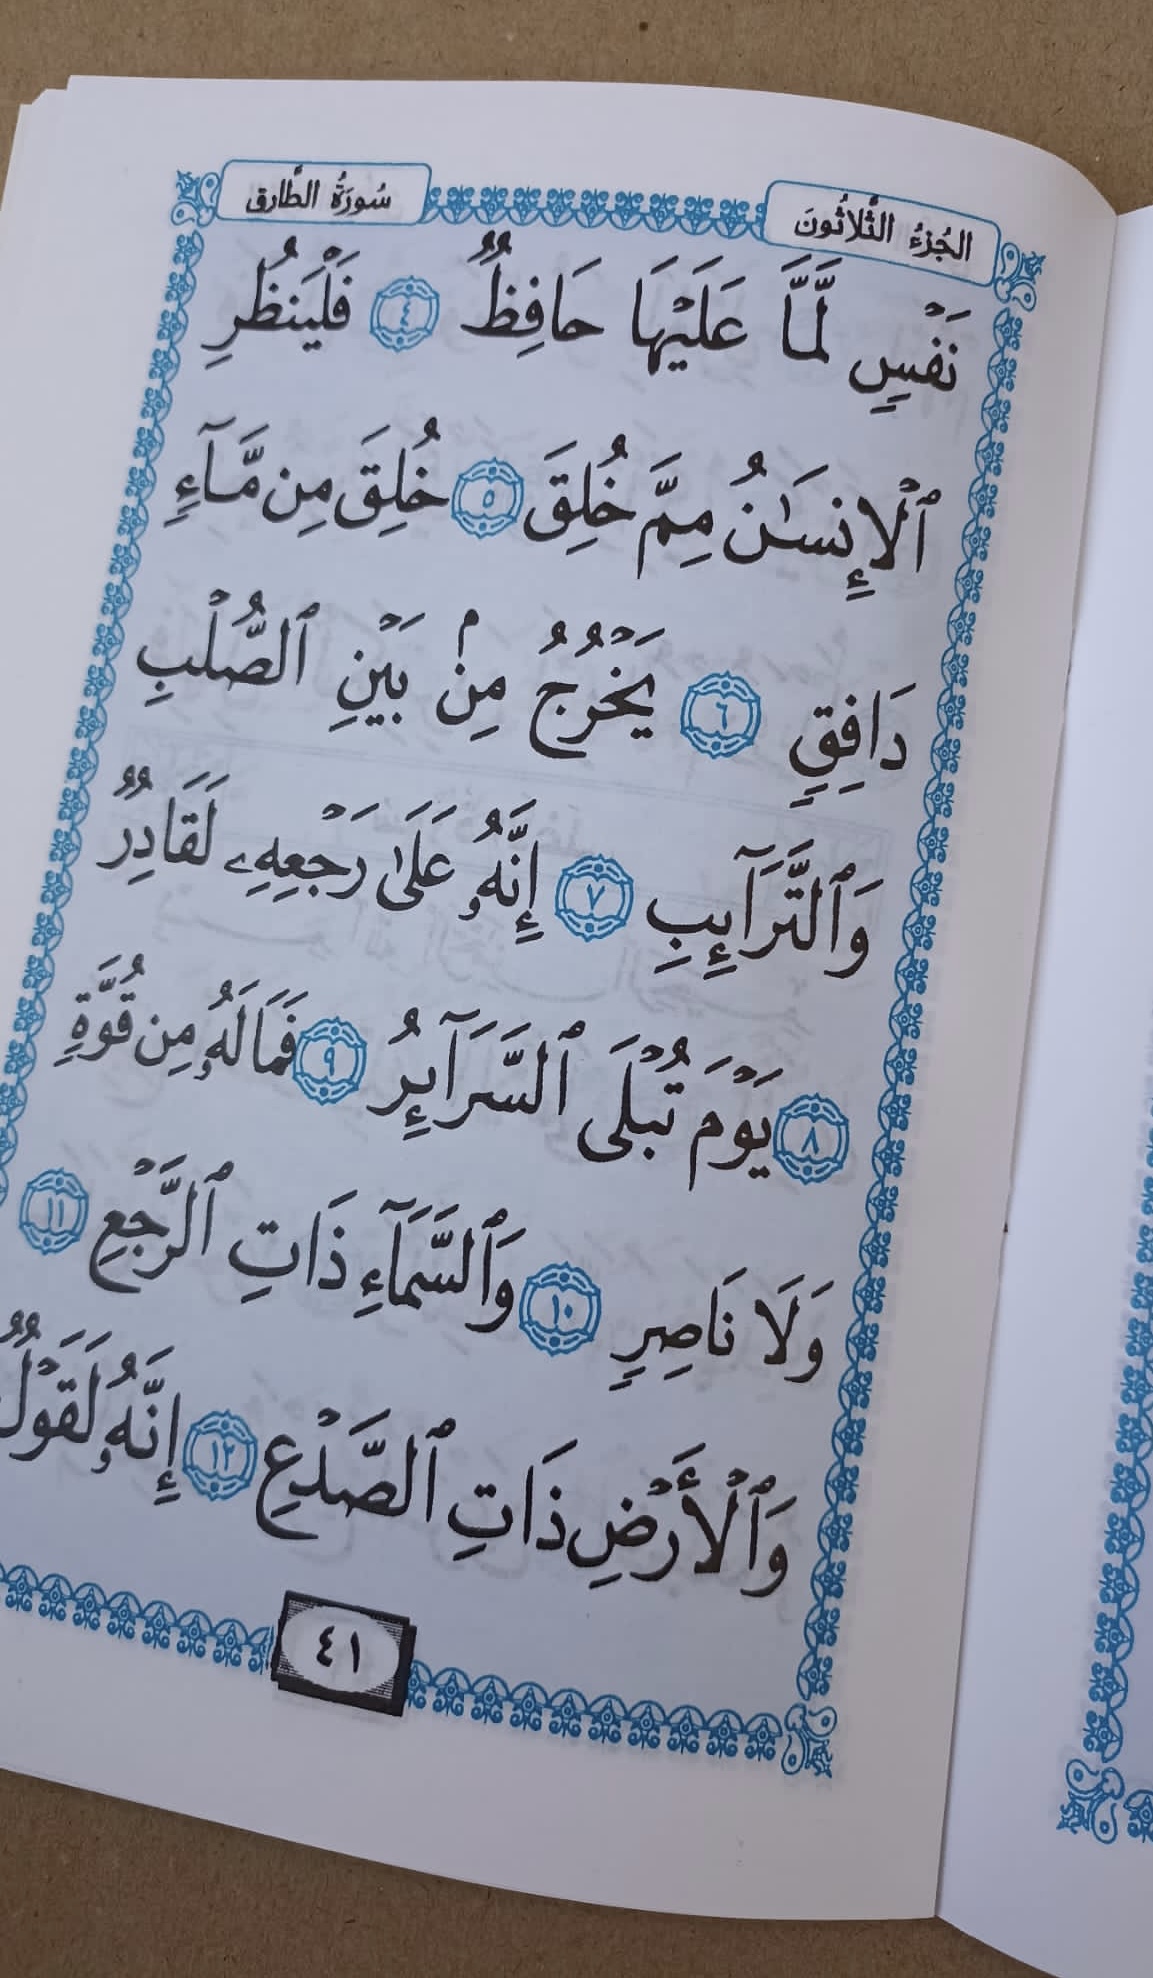 الجُزءُ الثَّلاثُونَ
سُورَةُ الطَّارق
نَفْسٍ لَّمَّا عَلَيْهَا حَافِظٌ ٤ فَلْيَنظُرِ
ٱلْإِنسَٰنُ مِمَّ خُلِقَ ٥ خُلِقَ مِن مَّآءٍ
دَافِقٍ ٦ يَخْرُجُ مِنۢ بَيْنِ ٱلصُّلْبِ
وَٱلتَّرَآئِبِ ٧ إِنَّهُۥ عَلَىٰ رَجْعِهِۦ لَقَادِرٌ
٨ يَوْمَ تُبْلَى ٱلسَّرَآئِرُ ٩ فَمَا لَهُۥ مِن قُوَّةٍ
وَلَا نَاصِرٍ ١٠ وَٱلسَّمَآءِ ذَاتِ ٱلرَّجْعِ ١١
وَٱلْأَرْضِ ذَاتِ ٱلصَّدْعِ ١٢ إِنَّهُۥ لَقَوْلٌ
٤١